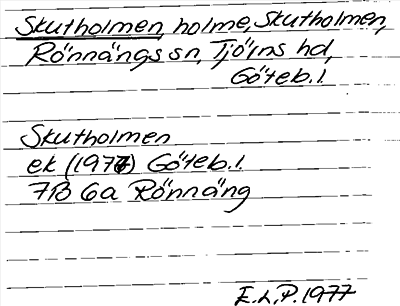 Skutholmen, holme, Skutholmen,
Rönnängs sn, Tjörns hd,
Göteb. l.
Skutholmen
ek (1977) Göteb. l.
7B 6a Rönnäng
E.L.P. 1977